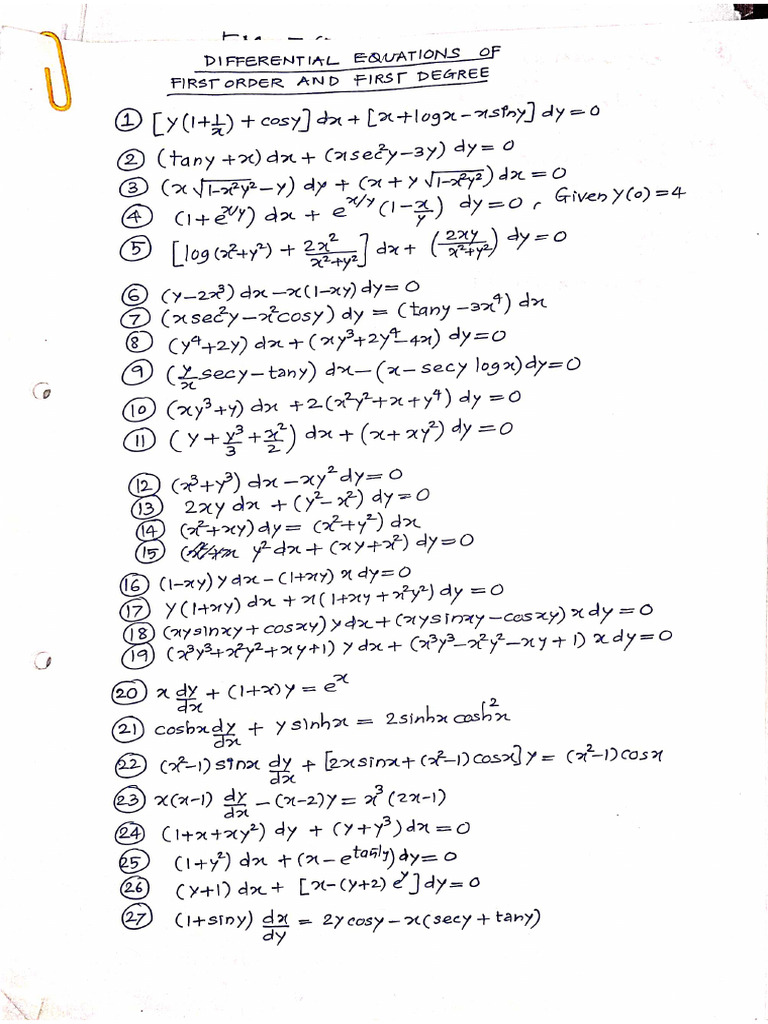 DIFFERENTIAL EQUATIONS OF
FIRST ORDER AND FIRST DEGREE
① [y(1+1/x) + cosy] dx + [x+logx-xsiny] dy=0
② (tany+x)dx + (xsec²y-3y) dy=0
③ (x√1-x²y² -y) dy + (x+y√1-x²y²)dx=0
④ (1+e^x/y) dx + e^x/y (1-x/y) dy=0, Given y(0)=4
⑤ [log(x²+y²) + 2x²/x²+y²] dx + (2xy/x²+y²) dy=0
⑥ (y-2x³) dx-x(1-xy)dy=0
⑦ (xsec²y-x²cosy) dy = (tany-3x⁴) dx
⑧ (y⁴+2y) dx+(xy³+2y⁴-4x) dy=0
⑨ (y/x secy-tany) dx-(x-secy logx)dy=0
⑩ (xy³+y) dx +2(x²y²+x+y⁴) dy=0
⑪ (y+y³/3+x²/2) dx+(x+xy²) dy=0
⑫ (x³+y³) dx-xy²dy=0
⑬ 2xy dx + (y²-x²) dy=0
⑭ (x²+xy)dy = (x²+y²) dx
⑮ y²dx+(xy+x²) dy=0
⑯ (1-xy) y dx-(1+xy) x dy=0
⑰ y(1+xy) dx+x(1+xy+x²y²) dy=0
⑱ (xysinxy+cosxy) y dx+(xysinxy-cosxy) x dy=0
⑲ (x³y³+x²y²+xy+1) y dx+(x³y³-x²y²-xy+1) x dy=0
⑳ x dy/dx + (1+x)y = e^x
㉑ coshx dy/dx + y sinhx = 2sinhx cosh²x
㉒ (x²-1) sinx dy/dx + [2xsinx+(x²-1)cosx]y = (x²-1)cosx
㉓ x(x-1) dy/dx -(x-2)y = x³(2x-1)
㉔ (1+x+xy²) dy + (y+y³)dx=0
㉕ (1+y²) dx +(x-e^tan⁻¹y)dy=0
㉖ (y+1) dx+ [x-(y+2) e^y]dy=0
㉗ (1+siny) dx/dy = 2y cosy-x(secy+tany)